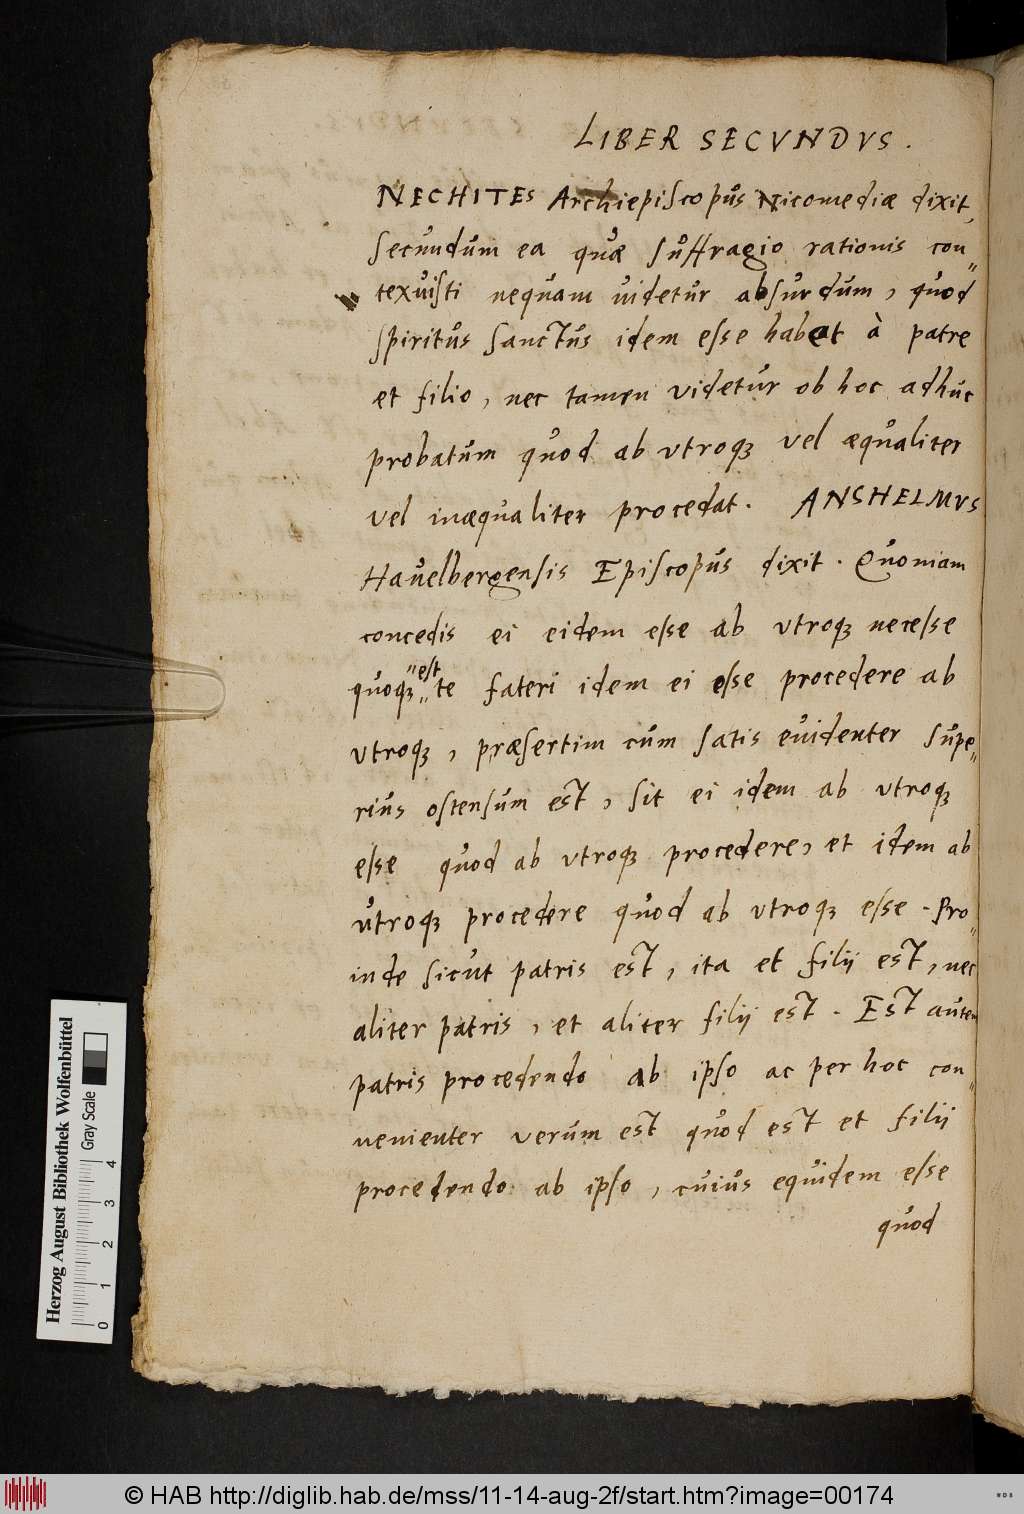 LIBER SECVNDVS.
NECHITES Archiepiscopus Nicomediæ dixit,
secundum ea quæ suffragio rationis con„
texuisti nequam uidetur absurdum, quod
spiritus sanctus idem esse habeat à patre
et filio, nec tamen videtur ob hoc adhuc
probatum quod ab vtroqꝫ vel æqualiter
vel inæqualiter procedat. ANSHELMVS
Hauelbergensis Episcopus dixit. Quoniam
concedis ei eidem esse ab vtroqꝫ necesse
quoqꝫ „est„ te fateri idem ei esse procedere ab
vtroqꝫ, præsertim cum satis euidenter supe„
rius ostensum est, sit ei idem ab vtroqꝫ
esse quod ab vtroqꝫ procedere, et idem ab
utroqꝫ procedere quod ab vtroqꝫ esse. Pro„
inde sicut patris est, ita et filii est, nec
aliter patris, et aliter filij est. Est autem
patris procedendo ab ipso ac per hoc con„
uenienter verum est quod est et filij
procedendo ab ipso, cuius equidem esse
quod
Herzog August Bibliothek Wolfenbüttel
Gray Scale
0 1 2 3 4
© HAB http://diglib.hab.de/mss/11-14-aug-2f/start.htm?image=00174